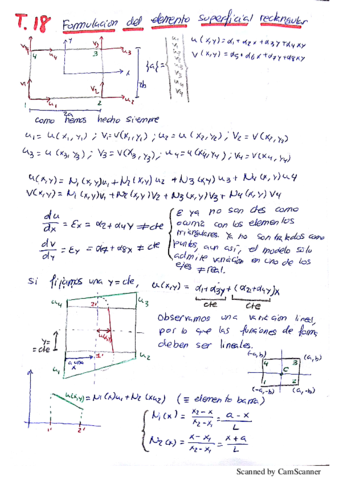 T.18 Formulación del elemento superficial rectangular
u(x,y) = α1 + α2x + α3y + α4xy
v(x,y) = α5 + α6x + α7y + α8xy
como hemos hecho siempre
u1 = u(x1, y1) ; v1 = v(x1, y1) ; u2 = u(x2, y2) ; v2 = v(x2, y2)
u3 = u(x3, y3) ; v3 = v(x3, y3) ; u4 = u(x4, y4) ; v4 = v(x4, y4)
u(x,y) = N1(x,y)u1 + N2(x,y)u2 + N3(x,y)u3 + N4(x,y)u4
v(x,y) = N1(x,y)v1 + N2(x,y)v2 + N3(x,y)v3 + N4(x,y)v4
du/dx = εx = α2 + α4y ≠ cte
dv/dy = εy = α7 + α8x ≠ cte
ε ya no son ctes como
ocurría con los elementos
triangulares ya no son tratados como
puntos, aun así, el modelo solo
admite variación en uno de los
ejes ≠ real.
si fijamos una y = cte, u(x,y) = α1 + α3y + (α2 + α4y)x
cte cte
Observamos una variación lineal,
por lo que las funciones de forma
deben ser lineales.
u4 u3
y = cte
u1 u2
1' 2'
(-a, b) (a, b)
4 3
C
1 2
(-a, -b) (a, -b)
u(x,y) = N1(x)u1 + N2(x)u2 (≡ elemento barra)
N1(x) = x2 - x / x2 - x1 = a - x / L
N2(x) = x - x1 / x2 - x1 = x + a / L
1' 2'
Scanned by CamScanner